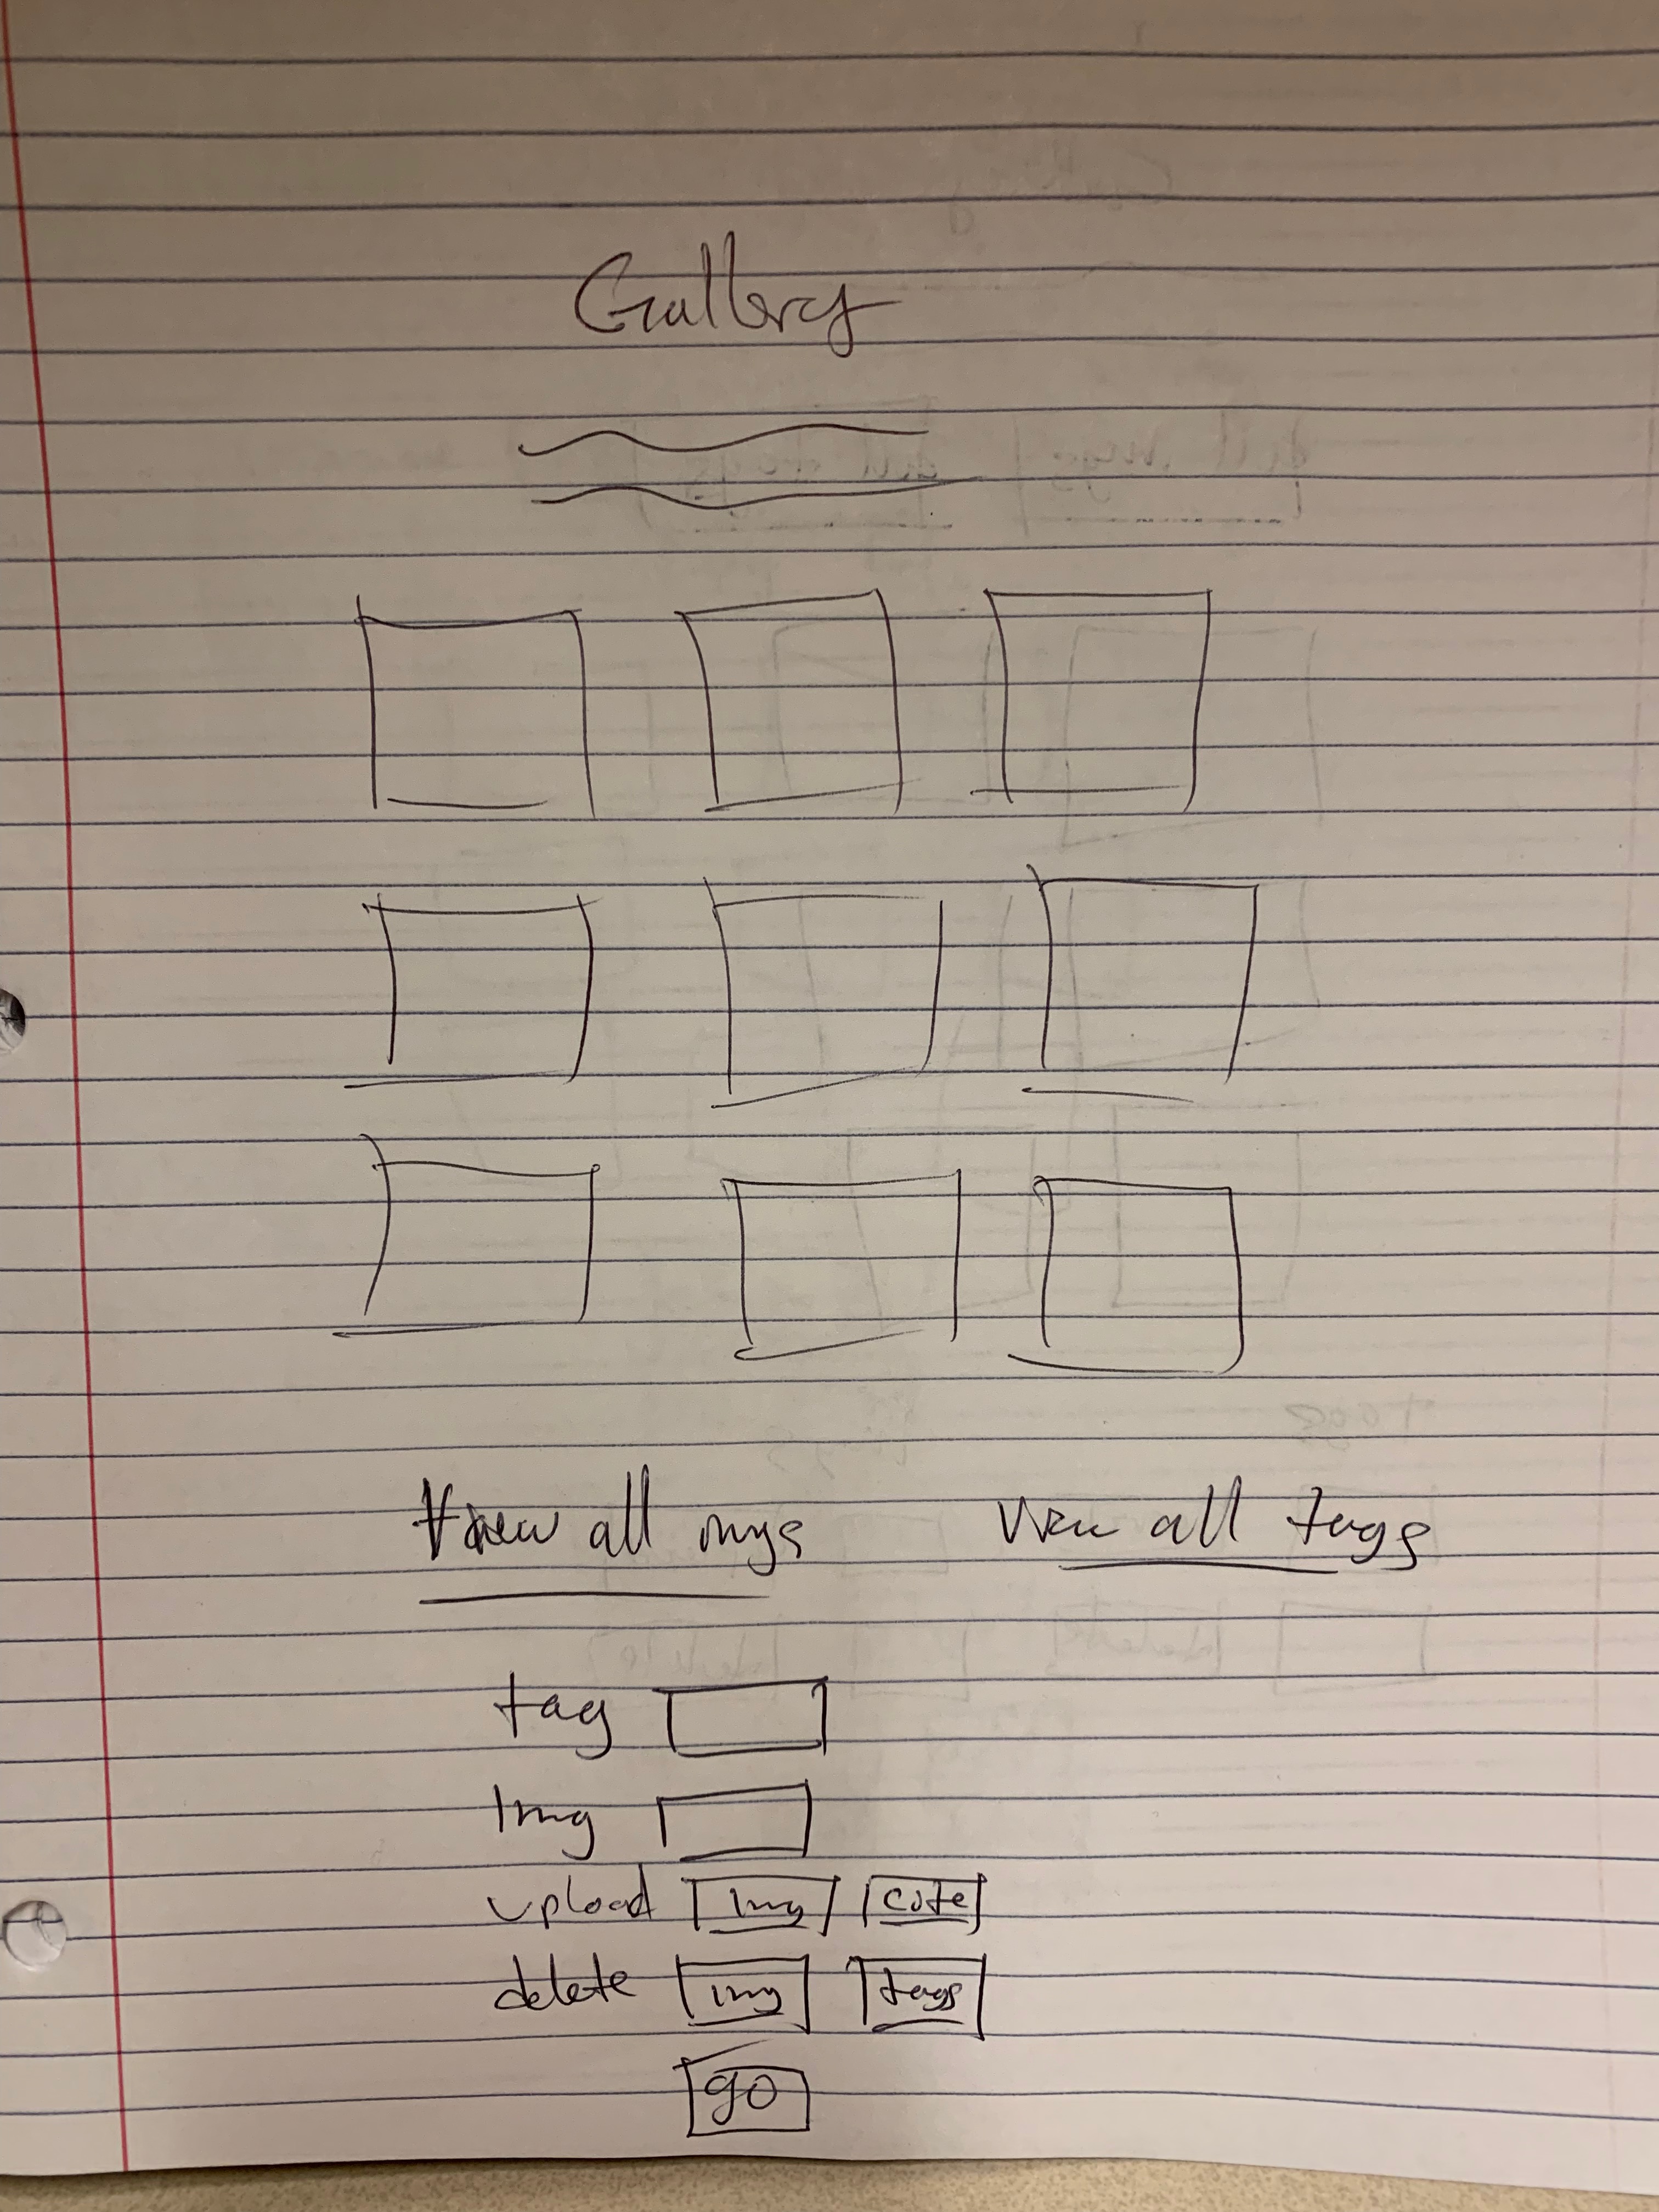 Gallery
View all imgs View all tags
tag
Img
upload Img
delete img tags
go